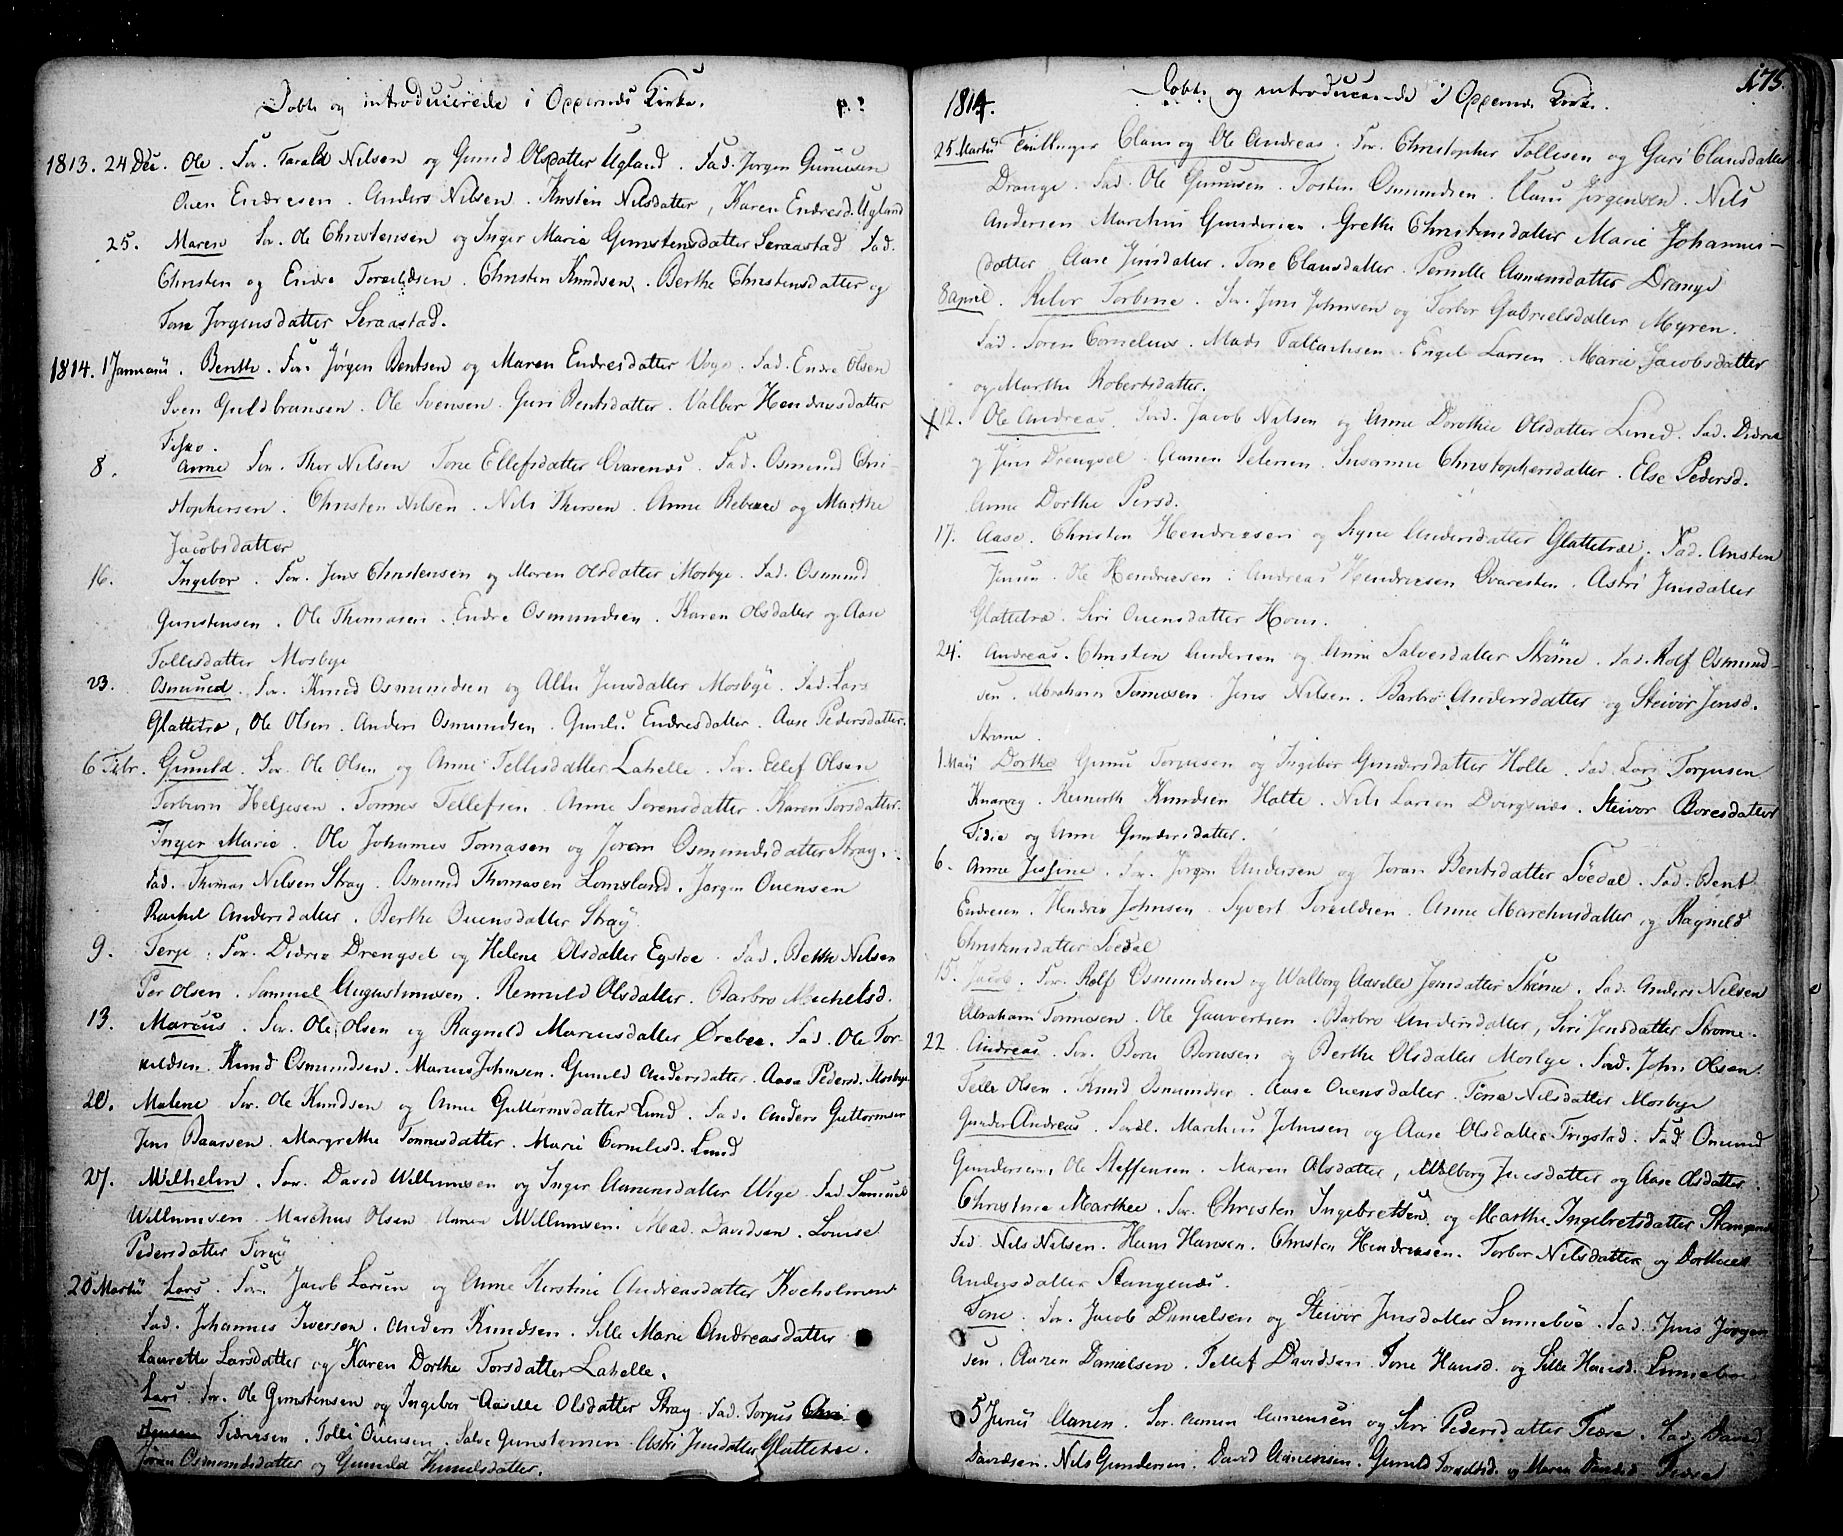 Døbte og introducerede i Oppernes Kirke.
1813. 24 Dec. Ole. For. Tarald Nilsen og Gunild Olsdatter Ugland. Fad. Jørgen Gunnusen
Ouen Endresen. Anders Nilsen. Kirsten Nilsdatter, Karen Endresd. Ugland
25. Maren For. Ole Christensen og Inger Marie Gunstensdatter Leraastad Fad.
Christen og Endre Torkildsen. Christen Knudsen. Berthe Christensdatter og
Tone Jørgensdatter Leraastad.
1814. 1 Januarii. Benthe. For. Jørgen Bentsen og Maren Endresdatter Fad. Endre Olsen
Sven Guldbransen. Ole Svensen. Guri Bentsdatter. Valbor Hendricsdatter
8. Anne For. Thor Nilsen Tone Ellefsdatter Qvarenes. Fad. Osmund Chri-
stophersen. Christen Nilsen. Nils Thorsen. Anne Rebecca og Marthe
Jacobsdatter
16. Ingebor. For. Jens Christensen og Maren Olsdatter Mosbye. Fad. Osmund
Gunstensen. Ole Thomasen. Endre Osmundsen. Karen Olsdatter og Aase
Tollisdatter Mosbye
23. Osmund. For. Knud Osmundsen og Jensdatter Mosbye. Fad. Lars
Glattetræ, Ole Olsen. Anders Osmundsen. Endresdatter. Aase Pedersdatter.
6 Febr. Gunild. For. Ole Olsen og Anne Tellisdatter Lahelle. For. Ellef Olsen
Torbiørn Heljesen. Tønnes Tellefsen. Anne Sørensdatter. Karen Torsdatter.
Inger Marie. Ole Johannes Tomasen og Joran Osmundsdatter Stray.
Fad. Thomas Nilsen Stray. Osmund Thomasen Lomsland. Jørgen Ouensen
Rachel Andersdatter. Berthe Ouensdatter Stray
9. Terje. For. Didric Drengsel og Helene Olsdatter Egstøe. Fad. Nilsen
Per Olsen. Samuel Augustinusen. Olsdatter. Barbro Michelsd.
13. Marcus. For. Ole Olsen og Ragnild Marcusdatter Fad. Ole Tor-
kildsen. Knud Osmundsen. Marcus Johnsen. Gunild Andersdatter. Aase Pedersd. Mosbye
20. Malene For. Ole Knudsen og Anne Guttormsdatter Lund. Fad. Anders Guttormsen
Jens Baarsen. Margrethe Tønnesdatter. Marie Cornelisd. Lund
27. Wilhelm. For. David Willumsen og Inger Aanensdatter Wige. Fad. Samuel
Willumsen. Marchus Olsen Aanen Willumsen. Mad. Davidsen. Louise
Pedersdatter
20 Martii Lars. For. Jacob Larsen og Anne Kirstine Andreasdatter Kocholmen
Fad. Johannes Iversen. Anders Knudsen. Sille Marie Andreasdatter
Laurette Larsdatter og Karen Dorthe Torsdatter Lahelle.
Lars. For. Ole Gunstensen og Ingebor Aaselle Olsdatter Stray. Fad. Torjus
Tellef Ouensen. Salve Gunstensen. Astri Jensdatter Glattetræ.
Joran Osmundsdatter og Gunild Knudsdatter.
175.
1814. Døbte og introducerede i Oppernes Kirke.
25. Martii Tvillinger Claus og Ole Andreas. For. Christopher Tollisen og Guri Clausdatter
Drange. Fad. Ole Gunnusen. Tosten Osmundsen. Claus Jørgensen. Nils
Andersen Marchus Gundersen. Grethe Christensdatter Marie Johannis-
datter Aase Jensdatter. Tone Clausdatter. Pernille Aanensdatter Drange
8 April. Torbine. For. Jens Johnsen og Torbor Gabrielsdatter Myren.
Fad. Søren Cornelius. Mads Engel Larsen. Marie Jacobsdatter
og Marthe Robertsdatter.
12. Ole Andreas. For. Jacob Nilsen og Anne Dorothe Olsdatter Lund. Fad. Didric
og Jens Drengsel. Aanen Petersen. Susanne Christophersdatter. Else Pedersd.
Anne Dorthe Persd.
17. Aase. Christen Hendricsen og Signe Andersdatter Glattetræ. Fad. Ansten
Jensen. Ole Hendricsen. Andreas Hendricsen Qvaresten. Astri Jensdatter
Glattetræ. Siri Ouensdatter Hom.
24. Andreas. Christen Andersen og Anne Salvesdatter Strømme. Fad. Rolf Osmund-
sen. Abraham Tomesen. Jens Nilsen. Barbro Andersdatter og Steivor Jensd.
Strøme.
1. Maii Dorthe Gunnu Torjusen og Ingebor Gundersdatter Holte. Fad. Lars Torjusen
Knarvig. Reinerth Knudsen Holte. Nils Larsen Dvergsnes. Steivor Boresdatter
Tidie og Anne Gundersdatter.
6. Anne Josfine. For. Jørgen Andersen og Joran Bentsdatter Soedal. Fad. Bent
Endresen. Hendric Johnsen. Syvert Torkildsen. Anne Marchusdatter og Ragnild
Christensdatter Soedal
15. Jacob. For. Rolf Osmundsen og Walborg Aaselle Jensdatter Strøme. Fad. Anders Nilsen
Abraham Tomasen. Ole Barbro Andersdatter, Siri Jensdatter Strøme.
22 Andreas. For. Bore Borusen og Berthe Olsdatter Mosbye. Fad. John Olsen
Olsen. Knud Osmundsen. Aase Ouensdatter. Tone Nilsdatter Mosbye
Gunder Andreas. Forel. Marchus Johnsen og Aase Olsdatter Fad. Omund
Gundersen. Ole Steffensen. Maren Olsdatter, Walborg Jensdatter og Aase Olsdatter.
Christine Marthee. For. Christen Ingebretsen og Marthe Ingebretsdatter Stangenes
Fad. Nils Nilsen. Hans Hansen. Christen Hendricsen. Torbor Nilsdatter og Dorthea
Andersdatter Stangenes.
Tone. For. Jacob Danielsen og Steivor Jensdatter Linneboe. Fad. Jens Jørgen-
sen. Aanen Danielsen. Tellef Davidsen. Tone Hansd. og Sille Hansd. Linneboe
5 Junii Aanen. For. Aanen Aanensen og Siri Pedersdatter Fad. David
Davidsen. Nils Gundersen. David Aanensen. Gunild og Maren